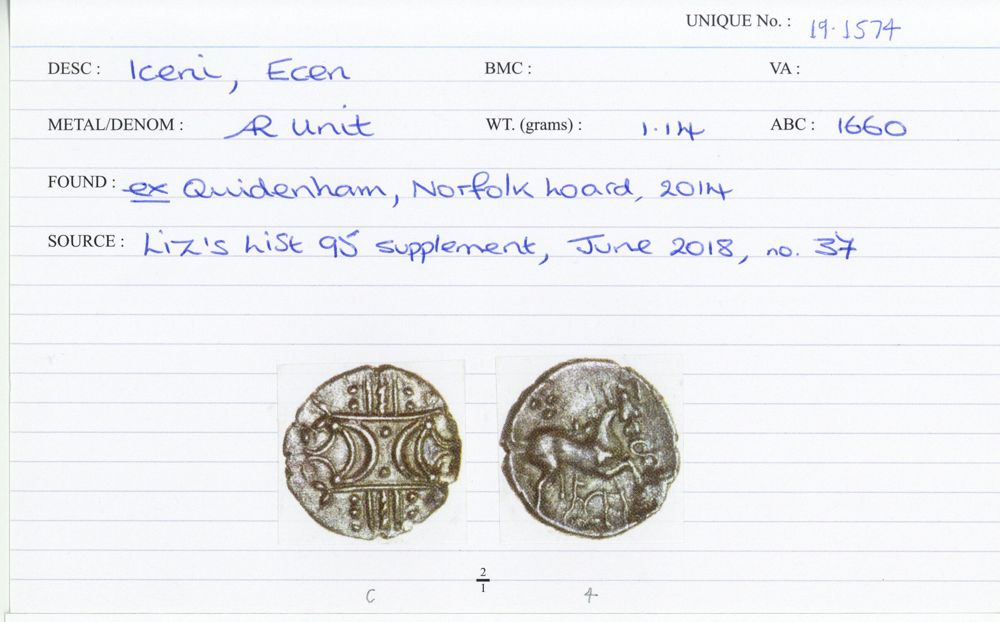 UNIQUE No. : 19.1574
DESC : Iceni, Ecen BMC : VA :
METAL/DENOM : AR Unit WT. (grams) : 1.14 ABC : 1660
FOUND : ex Quidenham, Norfolk hoard, 2014
SOURCE : Liz's List 95 supplement, June 2018, no. 37
2
1
C 4